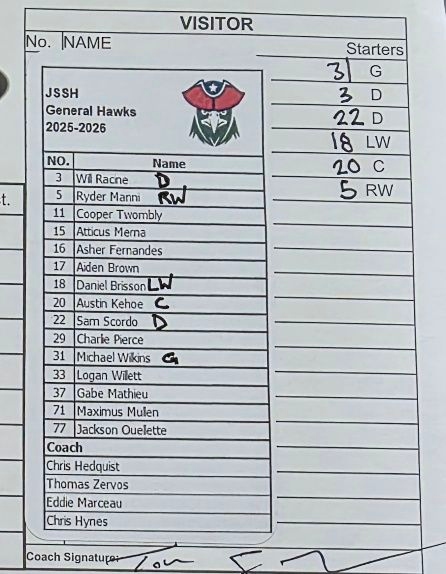 VISITOR
No. NAME
Starters
31 G
3 D
22 D
18 LW
20 C
5 RW
JSSH
General Hawks
2025-2026
NO. Name
3 Wil Racine D
5 Ryder Manni RW
11 Cooper Twombly
15 Atticus Merna
16 Asher Fernandes
17 Aiden Brown
18 Daniel Brisson LW
20 Austin Kehoe C
22 Sam Scordo D
29 Charlie Pierce
31 Michael Wilkins G
33 Logan Willett
37 Gabe Mathieu
71 Maximus Mulen
77 Jackson Ouelette
Coach
Chris Hedquist
Thomas Zervos
Eddie Marceau
Chris Hynes
Coach Signature: Tom